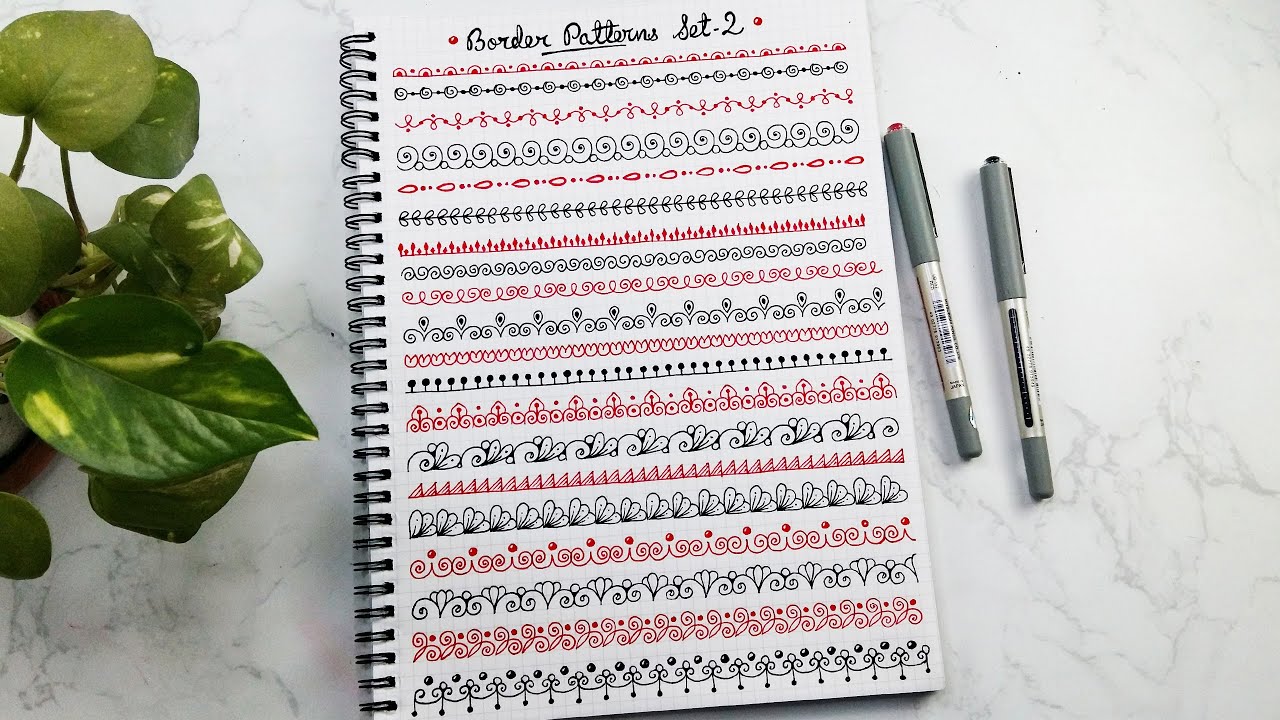 Border Patterns Set-2